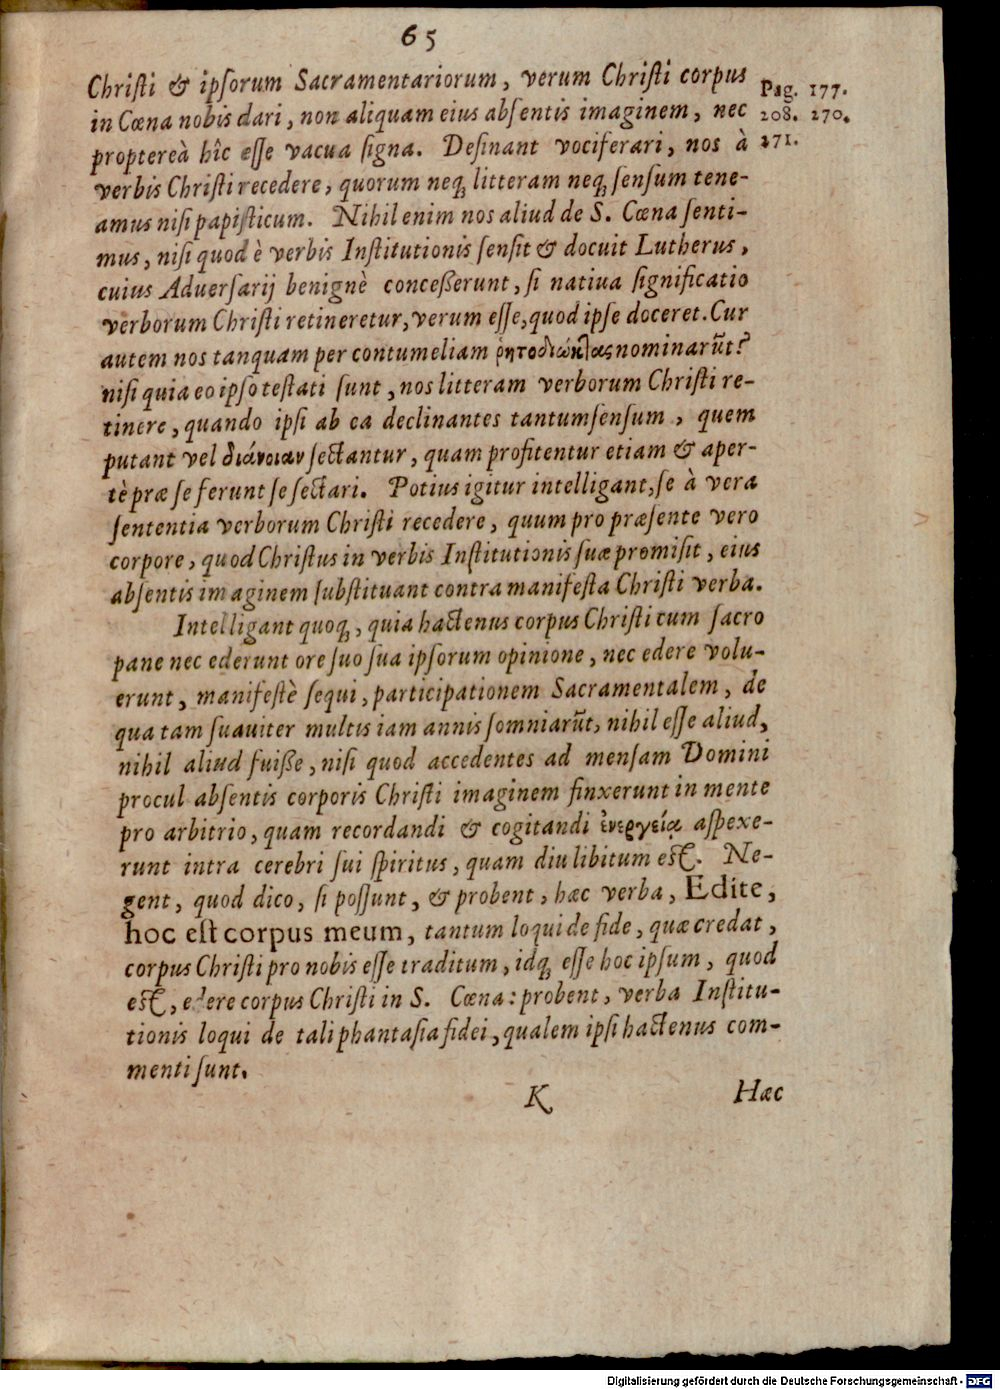 65
Christi & ipsorum Sacramentariorum, verum Christi corpus
Pag. 177.
in Cœna nobis dari, non aliquam eius absentis imaginem, nec
208. 270.
proptereà hîc esse vacua signa. Desinant vociferari, nos à
271.
verbis Christi recedere, quorum neq; litteram neq; sensum tene-
amus nisi papisticum. Nihil enim nos aliud de S. Cœna senti-
mus, nisi quod è verbis Institutionis sensit & docuit Lutherus,
cuius Adversarij benignè conceßerunt, si natiua significatio
verborum Christi retineretur, verum esse, quod ipse doceret. Cur
autem nos tanquam per contumeliam ῥητοδιώκτας nominarūt?
nisi quia eo ipso testati sunt, nos litteram verborum Christi re-
tinere, quando ipsi ab ea declinantes tantum sensum, quem
putant vel διάνοιαν sectantur, quam profitentur etiam & aper-
tè præ se ferunt se sectari. Potius igitur intelligant, se à vera
sententia verborum Christi recedere, quum pro præsente vero
corpore, quod Christus in verbis Institutionis suæ promisit, eius
absentis imaginem substituant contra manifesta Christi verba.
Intelligant quoq;, quia hactenus corpus Christi cum sacro
pane nec ederunt ore suo sua ipsorum opinione, nec edere volu-
erunt, manifestè sequi, participationem Sacramentalem, de
qua tam suauiter multis iam annis somniarūt, nihil esse aliud,
nihil aliud fuiße, nisi quod accedentes ad mensam Domini
procul absentis corporis Christi imaginem finxerunt in mente
pro arbitrio, quam recordandi & cogitandi ἐνεργείᾳ aspexe-
runt intra cerebri sui spiritus, quam diu libitum est. Ne-
gent, quod dico, si possunt, & probent, hæc verba, Edite,
hoc est corpus meum, tantum loqui de fide, quæ credat,
corpus Christi pro nobis esse traditum, idq; esse hoc ipsum, quod
est, edere corpus Christi in S. Cœna: probent, verba Institu-
tionis loqui de tali phantasia fidei, qualem ipsi hactenus com-
menti sunt.
K
Hæc
Digitalisierung gefördert durch die Deutsche Forschungsgemeinschaft - DFG